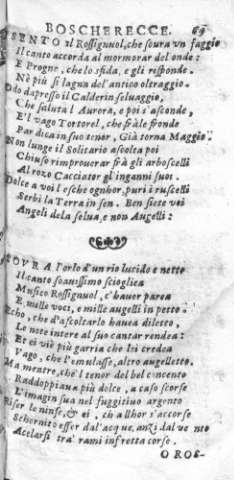 BOSCHERECCE. 69
SENTO il Rossignuol, che soura un faggio
Il canto accorda al mormorar del onde:
E Progne, che lo sfida, e gli risponde.
Nè più si lagna del'antico oltraggio.
Odo dapresso il Calderin seluaggio,
Che saluta l'Aurora, e poi s'asconde,
E'l vago Tortorel, che frà le fronde
Par dica in suo tenor, Già torna Maggio.
Non lunge il Solitario ascolta poi
Chiuso rimprouerar frà gli arboscelli
Al rozo Cacciator gl'inganni suoi.
Dolce a voi l'esche ognhor, puri i ruscelli
Serbi la Terra in sen. Ben siete voi
Angeli dela selua, e non Augelli:
SOVRA l'orlo d'un rio lucido e netto
Il canto soauissimo scioglica
Musico Rossignuol, c'hauer parea
E mille voci, e mille augelli in petto.
Echo, che d'ascoltarlo hauea diletto,
Le note intere al suo cantar rendea:
Et ei viè più garria che lei credea
Vago, che l'emulasse, altro augelletto.
Ma mentre, che'l tenor del bel concento
Raddoppiaua più dolce, a caso scorse
L'imagin sua nel fuggitiuo argento
Riser le ninfe, & ei, ch allhor s'accorse
Schernito esser dal'acque, anzi dal vento
Acelarsi trà rami in fretta corse.
O ROS-